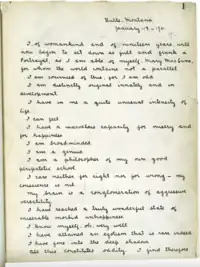 Butte, Montana
January 13, 1901
I of womankind and of nineteen years will
now begin to set down as full and frank a
Portrayal as I am able of myself, Mary MacLane,
for whom the world contains not a parallel
I am convinced of this, for I am odd
I am distinctly original innately and in
development
I have in me a quite unusual intensity of
life
I can feel
I have a marvelous capacity for misery and
for happiness
I am broad-minded
I am a genius
I am a philosopher of my own good
peripatetic school
I care neither for right nor for wrong — my
conscience is nil
My brain is a conglomeration of aggressive
versatility
I have reached a truly wonderful state of
miserable morbid unhappiness
I know myself, oh, very well
I have attained an egotism that is rare indeed
I have gone into the deep shadows
All this constitutes oddity I find therefore